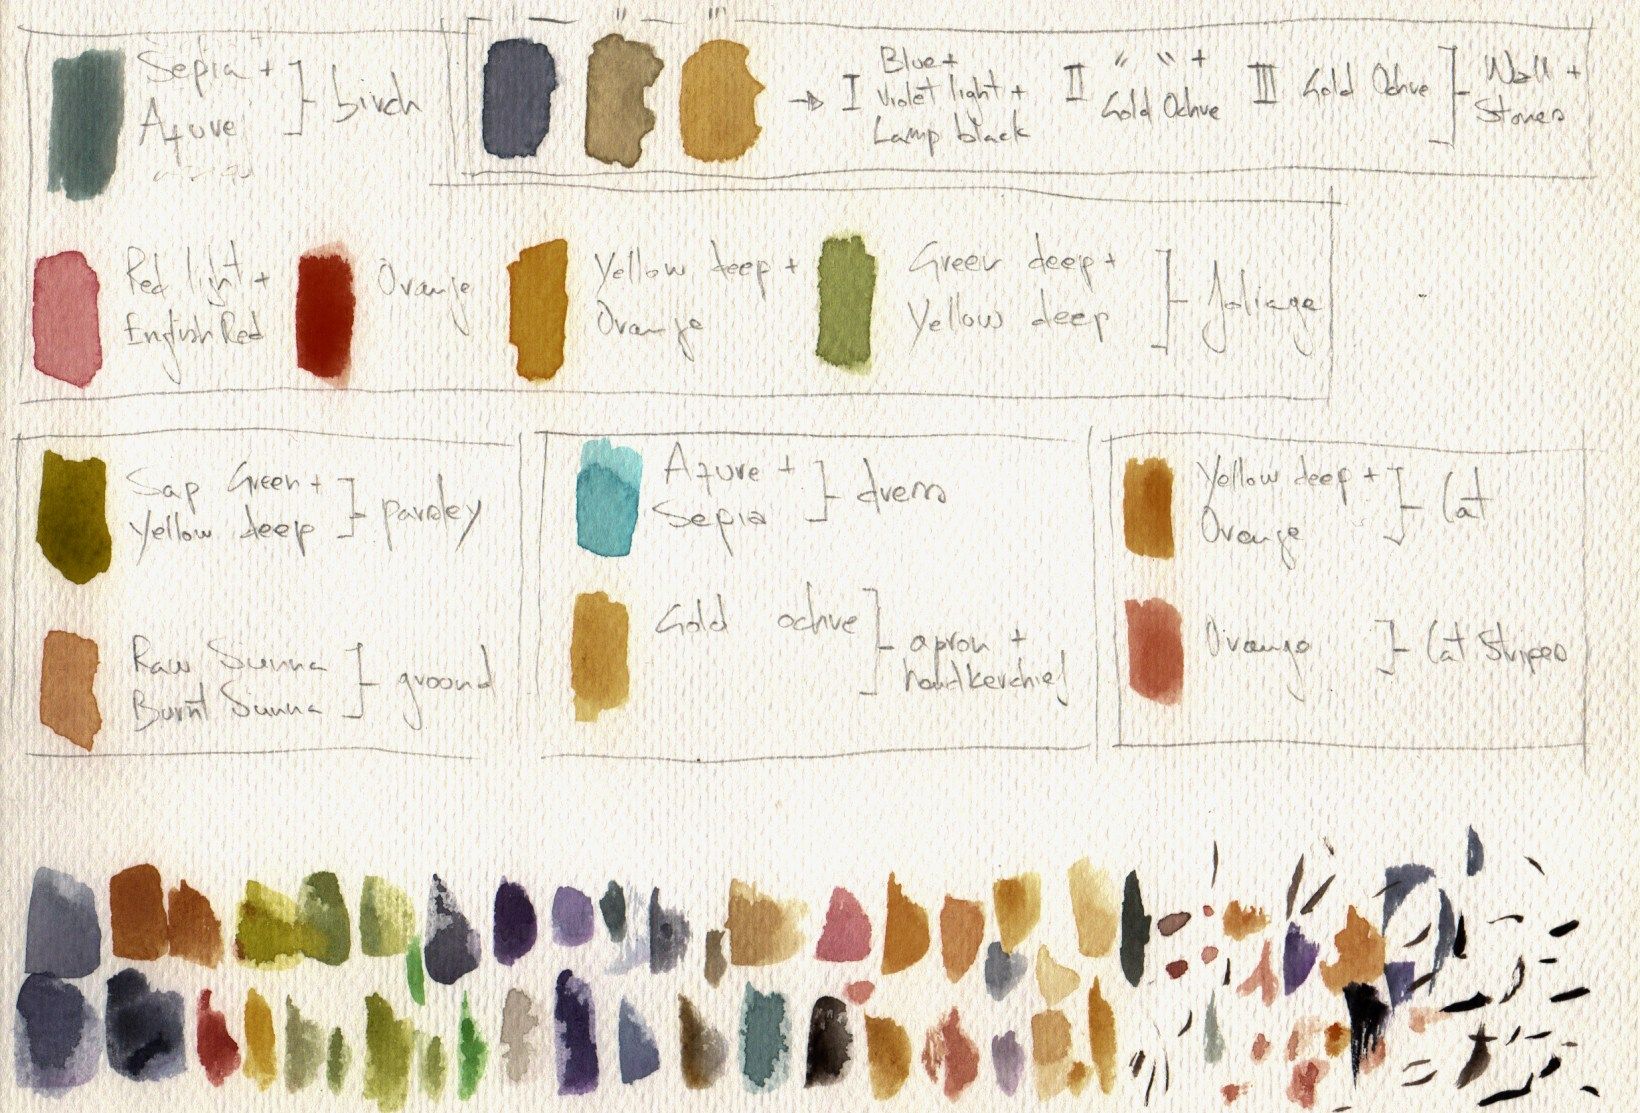 Sepia +
Azure
birch
I II III
I Blue +
Violet light +
Lamp black
II " " +
Gold Ochre
III Gold Ochre
Wall +
Stones
Red light +
English Red
Orange
Yellow deep +
Orange
Green deep +
Yellow deep
foliage
Sap Green +
Yellow deep
parsley
Raw Sienna
Burnt Sienna
ground
Azure +
Sepia
dress
Gold ochre
apron +
handkerchief
Yellow deep +
Orange
Cat
Orange
Cat Stripes